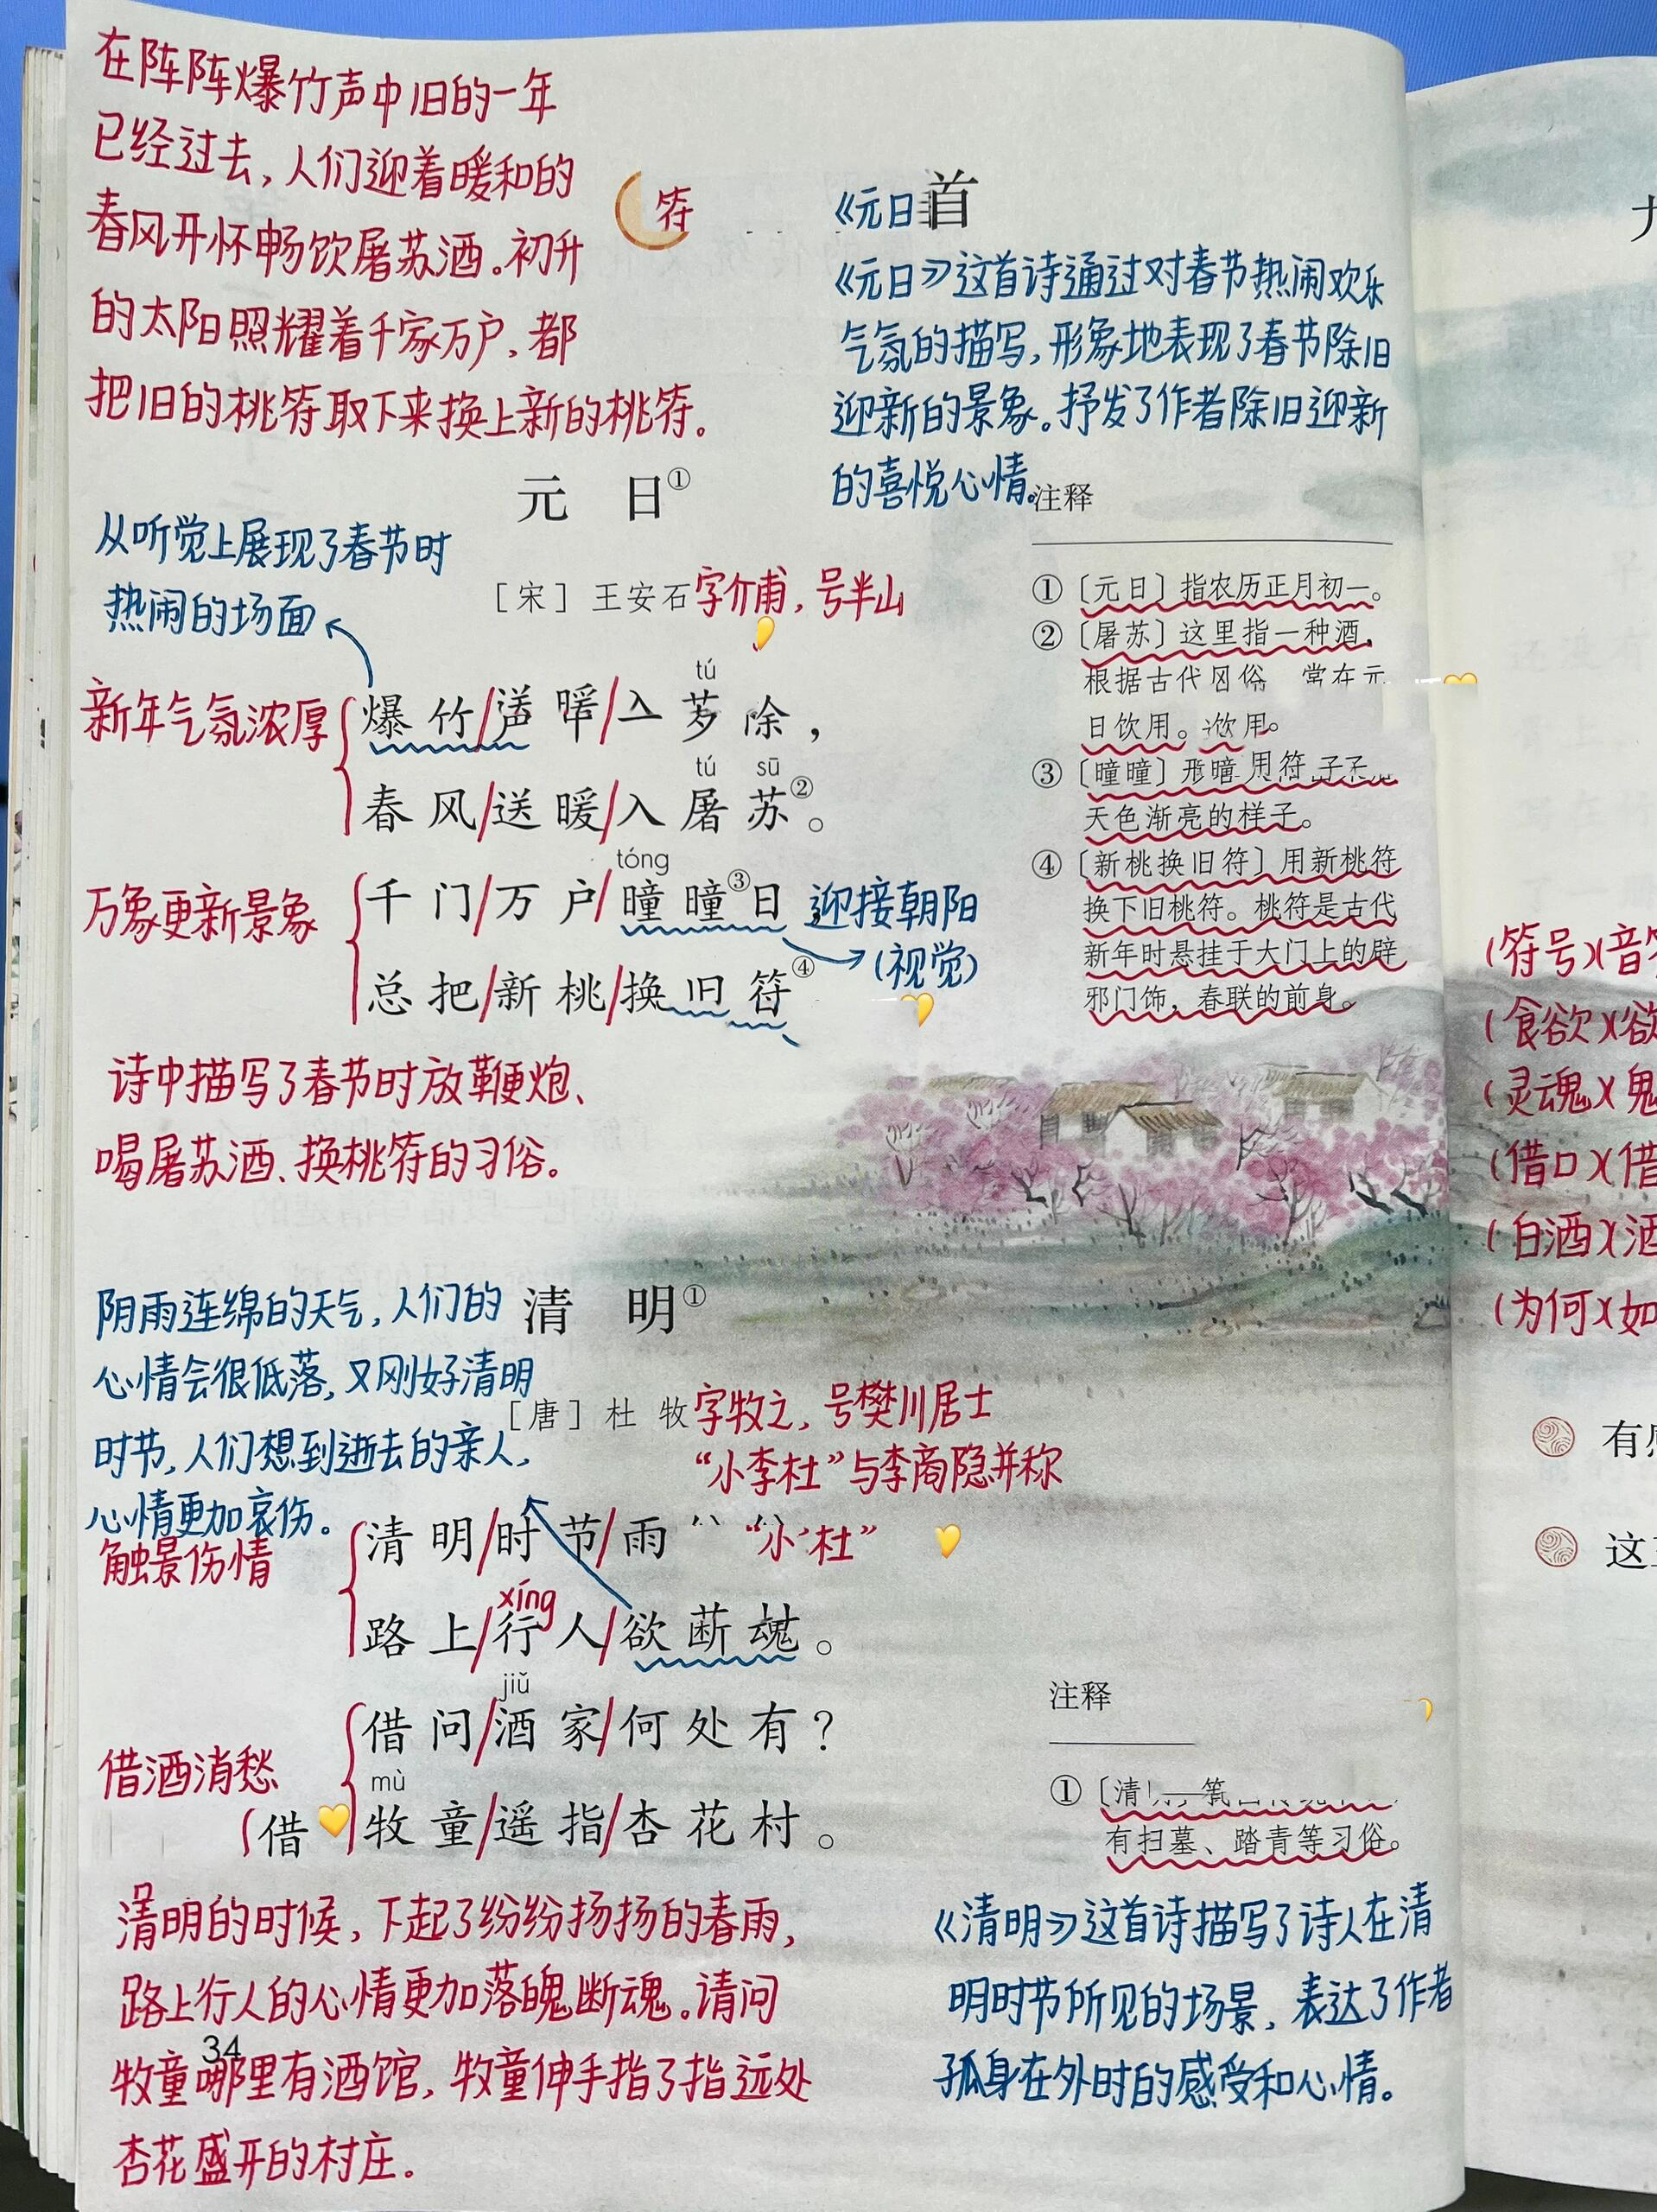 在阵阵爆竹声中旧的一年
已经过去,人们迎着暖和的
春风开怀畅饮屠苏酒。初升
的太阳照耀着千家万户,都
把旧的桃符取下来换上新的桃符。
符
《元日首
《元日》这首诗通过对春节热闹欢乐
气氛的描写,形象地表现了春节除旧
迎新的景象。抒发了作者除旧迎新
的喜悦心情。
元 日①
从听觉上展现了春节时
热闹的场面
[宋] 王安石字介甫,号半山
新年气氛浓厚
tú
爆竹/
除,
tú sū
春风/送暖/入屠苏②。
tóng
万象更新景象
千门/万户/曈曈③日
迎接朝阳
(视觉)
总把/新桃/换旧符④
诗中描写了春节时放鞭炮、
喝屠苏酒、换桃符的习俗。
注释
①〔元日〕指农历正月初一。
②〔屠苏〕这里指一种酒,
根据古代
日饮用。饮用。
③〔曈曈〕形
天色渐亮的样子。
④〔新桃换旧符〕用新桃符
换下旧桃符。桃符是古代
新年时悬挂于大门上的辟
邪门饰,春联的前身。
清 明①
阴雨连绵的天气,人们的
心情会很低落,又刚好清明
时节,人们想到逝去的亲人,
心情更加哀伤。
[唐] 杜 牧字牧之,号樊川居士
“小李杜”与李商隐并称
触景伤情
清明/时节/雨
“小 杜”
xíng
路上/行人/欲断魂。
jiǔ
借酒消愁
借问/酒家/何处有?
mù
借
牧童/遥指/杏花村。
注释
①〔清
有扫墓、踏青等习俗。
清明的时候,下起了纷纷扬扬的春雨,
路上行人的心情更加落魄断魂。请问
34
牧童哪里有酒馆,牧童伸手指了指远处
杏花盛开的村庄.
《清明》这首诗描写了诗人在清
明时节所见的场景,表达了作者
孤身在外时的感受和心情。
(符号)(音
(食欲)(欲
(灵魂)(鬼
(借口)(借
(白酒)(酒
(为何)(如
有
这